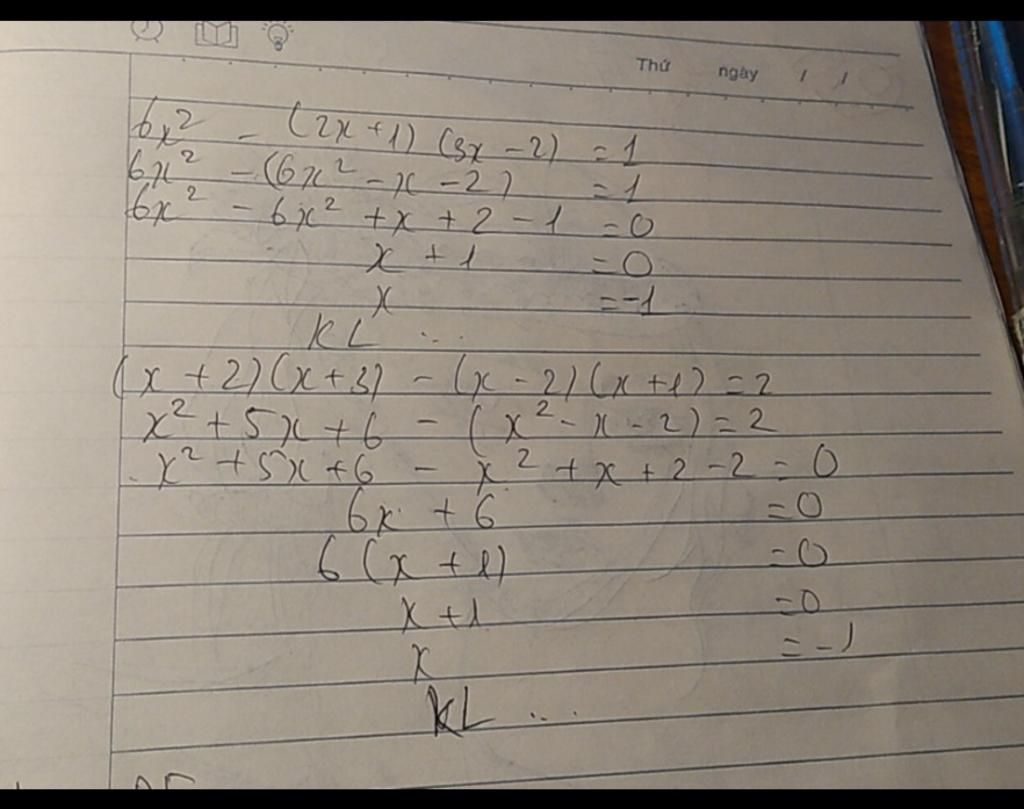 Thứ ngày / /
6x² - (2x+1) (3x-2) = 1
6x² - (6x² - x - 2) = 1
6x² - 6x² + x + 2 - 1 = 0
x + 1 = 0
x = -1
KL ...
(x + 2)(x+3) - (x-2)(x+1) = 2
x² + 5x + 6 - (x² - x - 2) = 2
x² + 5x + 6 - x² + x + 2 - 2 = 0
6x + 6 = 0
6 (x + 1) = 0
x + 1 = 0
x = -1
KL ...